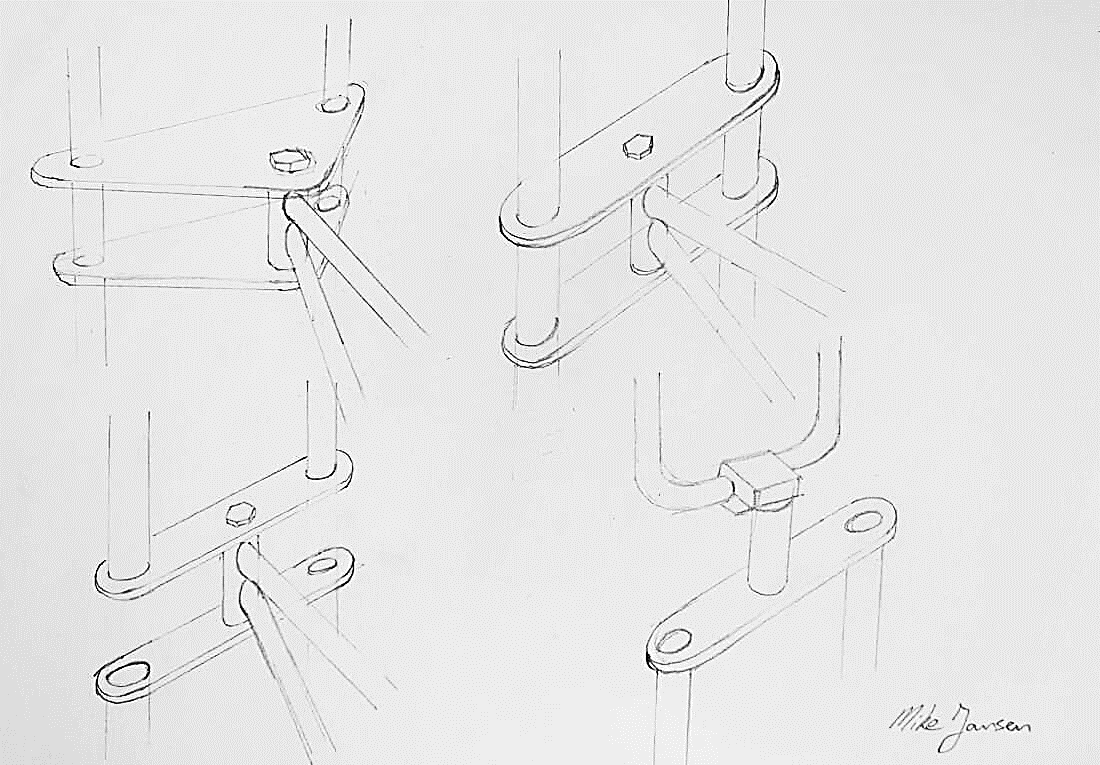 Mike Jansen